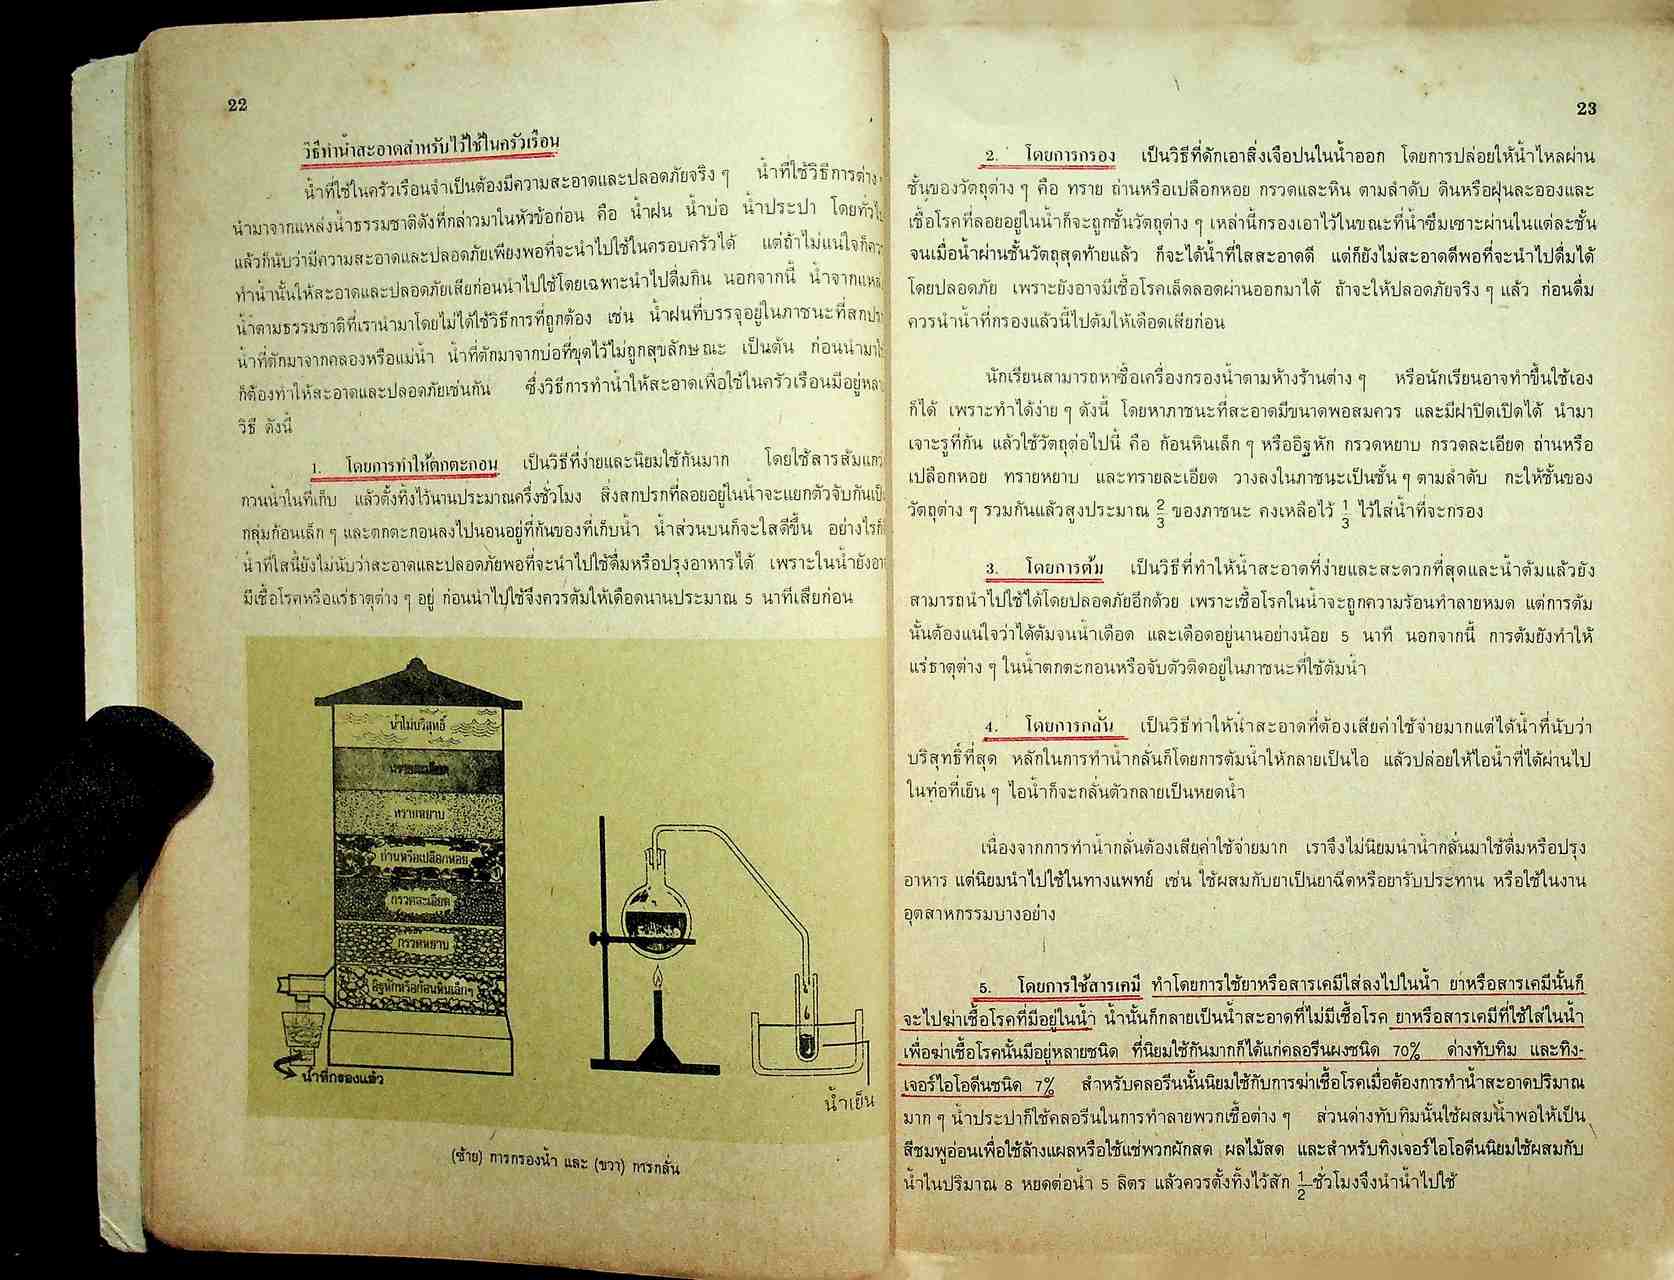 22
วิธีทำน้ำสะอาดสำหรับไว้ใช้ในครัวเรือน
น้ำที่ใช้ในครัวเรือนจำเป็นต้องมีความสะอาดและปลอดภัยจริง ๆ น้ำที่ใช้วิธีการต่าง
นำมาจากแหล่งน้ำธรรมชาติดังที่กล่าวมาในหัวข้อก่อน คือ น้ำฝน น้ำบ่อ น้ำประปา
แล้วก็นับว่ามีความสะอาดและปลอดภัยเพียงพอที่จะนำไปใช้ในครอบครัวได้ แต่ถ้าไม่แน่ใจ
ทำน้ำนั้นให้สะอาดและปลอดภัยเสียก่อนนำไปใช้โดยเฉพาะนำไปดื่มกิน นอกจากนี้
น้ำตามธรรมชาติที่เรานำมาโดยไม่ได้ใช้วิธีการที่ถูกต้อง เช่น น้ำฝนที่บรรจุอยู่ในภาชนะที่
น้ำที่ตักมาจากคลองหรือแม่น้ำ น้ำที่ตักมาจากบ่อที่ขุดไว้ไม่ถูกสุขลักษณะ เป็นต้น ก่อนนำมา
ก็ต้องทำให้สะอาดและปลอดภัยเช่นกัน ซึ่งวิธีการทำน้ำให้สะอาดเพื่อใช้ในครัวเรือนมีอยู่
วิธี ดังนี้
1. โดยการทำให้ตกตะกอน เป็นวิธีที่ง่ายและนิยมใช้กันมาก โดยใช้สารส้ม
กวนน้ำในที่เก็บ แล้วตั้งทิ้งไว้นานประมาณครึ่งชั่วโมง สิ่งสกปรกที่ลอยอยู่ในน้ำจะแยกตัวจับกัน
กลุ่มก้อนเล็ก ๆ และตกตะกอนลงไปนอนอยู่ที่ก้นของที่เก็บน้ำ น้ำส่วนบนก็จะใสดีขึ้น
น้ำที่ใสนี้ยังไม่นับว่าสะอาดและปลอดภัยพอที่จะนำไปใช้ดื่มหรือปรุงอาหารได้ เพราะในน้ำยัง
มีเชื้อโรคหรือแร่ธาตุต่าง ๆ อยู่ ก่อนนำไปใช้จึงควรต้มให้เดือดนานประมาณ 5 นาทีเสียก่อน
น้ำไม่บริสุทธิ์
ทรายละเอียด
ทรายหยาบ
ถ่านหรือเปลือกหอย
กรวดละเอียด
กรวดหยาบ
อิฐหักหรือก้อนหินเล็กๆ
น้ำที่กรองแล้ว
น้ำเย็น
(ซ้าย) การกรองน้ำ และ (ขวา) การกลั่น
23
2. โดยการกรอง เป็นวิธีที่ดักเอาสิ่งเจือปนในน้ำออก โดยการปล่อยให้น้ำไหลผ่าน
ชั้นของวัตถุต่าง ๆ คือ ทราย ถ่านหรือเปลือกหอย กรวดและหิน ตามลำดับ ดินหรือฝุ่นละอองและ
เชื้อโรคที่ลอยอยู่ในน้ำก็จะถูกชั้นวัตถุต่าง ๆ เหล่านี้กรองเอาไว้ในขณะที่น้ำซึมเซาะผ่านในแต่ละชั้น
จนเมื่อน้ำผ่านชั้นวัตถุสุดท้ายแล้ว ก็จะได้น้ำที่ใสสะอาดดี แต่ก็ยังไม่สะอาดดีพอที่จะนำไปดื่มได้
โดยปลอดภัย เพราะยังอาจมีเชื้อโรคเล็ดลอดผ่านออกมาได้ ถ้าจะให้ปลอดภัยจริง ๆ แล้ว ก่อนดื่ม
ควรนำน้ำที่กรองแล้วนี้ไปต้มให้เดือดเสียก่อน
นักเรียนสามารถหาซื้อเครื่องกรองน้ำตามห้างร้านต่าง ๆ หรือนักเรียนอาจทำขึ้นใช้เอง
ก็ได้ เพราะทำได้ง่าย ๆ ดังนี้ โดยหาภาชนะที่สะอาดมีขนาดพอสมควร และมีฝาปิดเปิดได้ นำมา
เจาะรูที่ก้น แล้วใช้วัตถุต่อไปนี้ คือ ก้อนหินเล็ก ๆ หรืออิฐหัก กรวดหยาบ กรวดละเอียด ถ่านหรือ
เปลือกหอย ทรายหยาบ และทรายละเอียด วางลงในภาชนะเป็นชั้น ๆ ตามลำดับ กะให้ชั้นของ
วัตถุต่าง ๆ รวมกันแล้วสูงประมาณ 2/3 ของภาชนะ คงเหลือไว้ 1/3 ไว้ใส่น้ำที่จะกรอง
3. โดยการต้ม เป็นวิธีที่ทำให้น้ำสะอาดที่ง่ายและสะดวกที่สุดและน้ำต้มแล้วยัง
สามารถนำไปใช้ได้โดยปลอดภัยอีกด้วย เพราะเชื้อโรคในน้ำจะถูกความร้อนทำลายหมด แต่การต้ม
นั้นต้องแน่ใจว่าได้ต้มจนน้ำเดือด และเดือดอยู่นานอย่างน้อย 5 นาที นอกจากนี้ การต้มยังทำให้
แร่ธาตุต่าง ๆ ในน้ำตกตะกอนหรือจับตัวติดอยู่ในภาชนะที่ใช้ต้มน้ำ
4. โดยการกลั่น เป็นวิธีทำให้น้ำสะอาดที่ต้องเสียค่าใช้จ่ายมากแต่ได้น้ำที่นับว่า
บริสุทธิ์ที่สุด หลักในการทำน้ำกลั่นก็โดยการต้มน้ำให้กลายเป็นไอ แล้วปล่อยให้ไอน้ำที่ได้ผ่านไป
ในท่อที่เย็น ๆ ไอน้ำก็จะกลั่นตัวกลายเป็นหยดน้ำ
เนื่องจากการทำน้ำกลั่นต้องเสียค่าใช้จ่ายมาก เราจึงไม่นิยมนำน้ำกลั่นมาใช้ดื่มหรือปรุง
อาหาร แต่นิยมนำไปใช้ในทางแพทย์ เช่น ใช้ผสมกับยาเป็นยาฉีดหรือยารับประทาน หรือใช้ในงาน
อุตสาหกรรมบางอย่าง
5. โดยการใช้สารเคมี ทำโดยการใช้ยาหรือสารเคมีใส่ลงไปในน้ำ ยาหรือสารเคมีนั้นก็
จะไปฆ่าเชื้อโรคที่มีอยู่ในน้ำ น้ำนั้นก็กลายเป็นน้ำสะอาดที่ไม่มีเชื้อโรค ยาหรือสารเคมีที่ใช้ใส่ในน้ำ
เพื่อฆ่าเชื้อโรคนั้นมีอยู่หลายชนิด ที่นิยมใช้กันมากก็ได้แก่คลอรีนผงชนิด 70% ด่างทับทิม และทิง-
เจอร์ไอโอดีนชนิด 7% สำหรับคลอรีนนั้นนิยมใช้กับการฆ่าเชื้อโรคเมื่อต้องการทำน้ำสะอาดปริมาณ
มาก ๆ น้ำประปาก็ใช้คลอรีนในการทำลายพวกเชื้อต่าง ๆ ส่วนด่างทับทิมนั้นใช้ผสมน้ำพอให้เป็น
สีชมพูอ่อนเพื่อใช้ล้างแผลหรือใช้แช่พวกผักสด ผลไม้สด และสำหรับทิงเจอร์ไอโอดีนนิยมใช้ผสมกับ
น้ำในปริมาณ 8 หยดต่อน้ำ 5 ลิตร แล้วควรตั้งทิ้งไว้สัก 1/2 ชั่วโมงจึงนำน้ำไปใช้